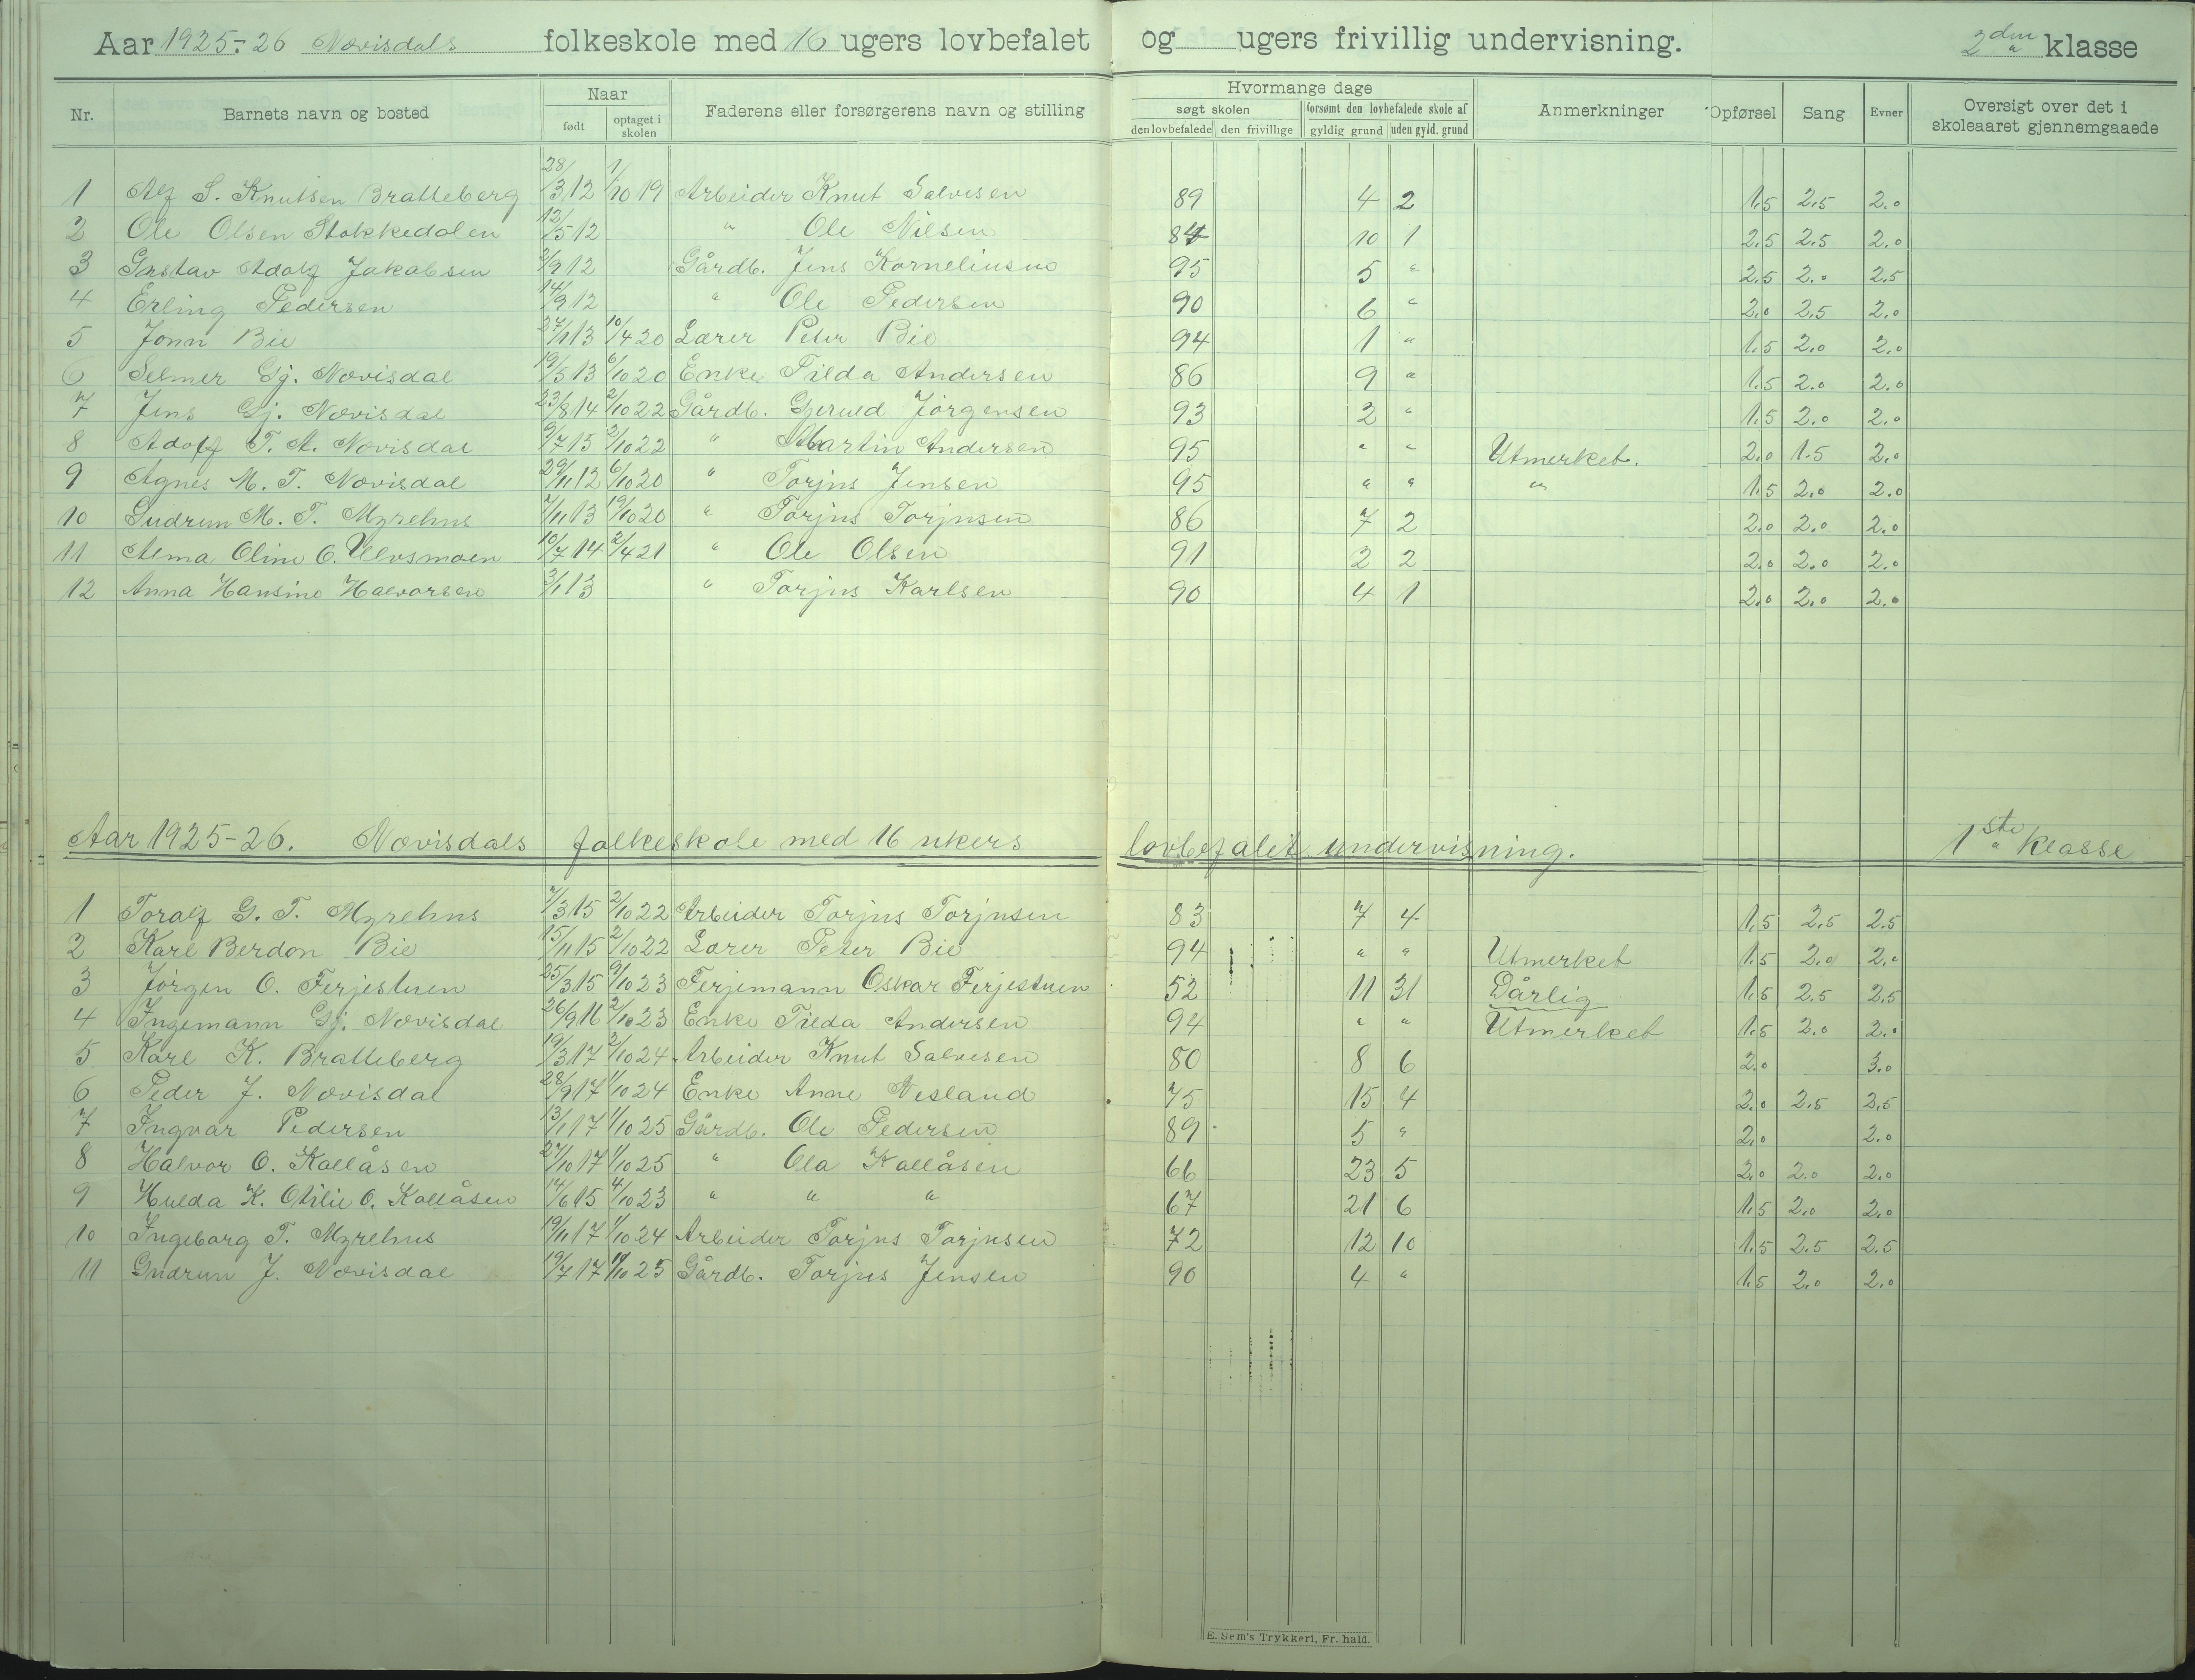 Aar 1925-26 Nævisdals folkeskole med 16 ugers lovbefalet og ugers frivillig undervisning. 2den klasse
Nr. Barnets navn og bosted Naar Faderens eller forsørgerens navn og stilling Hvormange dage Anmerkninger Opførsel Sang Evner Oversigt over det i skoleaaret gjennemgaaede
født optaget i skolen søgt skolen forsømt den lovbefalede skole af
den lovbefalede den frivillige gyldig grund uden gyld. grund
1 Alf S. Knutsen Bratteberg 28/3 12 1/10 19 Arbeider Knut Salvesen 89 4 2 1.5 2.5 2.0
2 Ole Olsen Stokkedalen 12/5 12 " Ole Nilsen 84 10 1 2.5 2.5 2.0
3 Gustav Adolf Jakobsen 2/9 12 Gårdb. Jens Korneliusen 95 5 " 2.5 2.0 2.5
4 Erling Pedersen 14/9 12 " Ole Pedersen 90 6 " 2.0 2.5 2.0
5 Jonn Bie 27/1 13 10/4 20 Lærer Peter Bie 94 1 " 1.5 2.0 2.0
6 Selmer Gj. Nævisdal 19/5 13 6/10 20 Enke Tilda Andersen 86 9 " 1.5 2.0 2.0
7 Jens Gj. Nævisdal 23/8 14 2/10 22 Gårdb. Gjerued Jørgensen 93 2 " 1.5 2.0 2.0
8 Adolf T. A. Nævisdal 9/7 15 2/10 22 " Martin Andersen 95 " " Utmerket. 2.0 1.5 2.0
9 Agnes M. T. Nævisdal 29/11 12 6/10 20 " Torjus Jensen 95 " " " 1.5 2.0 2.0
10 Gudrun M. T. Myrehus 7/11 13 19/10 20 " Torjus Torjusen 86 7 2 2.0 2.0 2.0
11 Alma Oline O. Ulvsmoen 10/7 14 2/4 21 " Ole Olsen 91 2 2 2.0 2.0 2.0
12 Anna Hansine Halvorsen 3/1 13 " Torjus Karlsen 90 4 1 2.0 2.0 2.0
Aar 1925-26. Nævisdals folkeskole med 16 ukers lovbefalet undervisning. 1ste klasse
1 Toralf G. T. Myrehus 7/3 15 2/10 22 Arbeider Torjus Torjusen 83 7 4 1.5 2.5 2.5
2 Karl Berdon Bie 15/11 15 2/10 22 Lærer Peter Bie 94 " " Utmerket 1.5 2.0 2.0
3 Jørgen O. Ferjestuen 25/3 15 9/10 23 Ferjemann Oskar Ferjestuen 52 11 31 Dårlig 1.5 2.5 2.5
4 Ingemann Gj. Nævisdal 26/9 16 2/10 23 Enke Tilda Andersen 94 " " Utmerket 1.5 2.0 2.0
5 Karl K. Bratteberg 19/3 17 2/10 24 Arbeider Knut Salvesen 80 8 6 2.0 3.0
6 Peder J. Nævisdal 28/9 17 1/10 24 Enke Anne Nesland 75 15 4 2.0 2.5 2.5
7 Ingvar Pedersen 13/1 17 1/10 25 Gårdb. Ole Pedersen 89 5 " 2.0 2.0
8 Halvor O. Kallåsen 27/10 17 1/10 25 " Ola Kallåsen 66 23 5 2.0 2.0 2.0
9 Hulda K. Otilie O. Kallåsen 14/6 15 4/10 23 " " " 67 21 6 1.5 2.0 2.0
10 Ingeborg T. Myrehus 19/11 17 1/10 24 Arbeider Torjus Torjusen 72 12 10 1.5 2.5 2.5
11 Gudrun J. Nævisdal 19/7 17 1/10 25 Gårdb. Torjus Jensen 90 4 " 1.5 2.0 2.0
E. Sem's Trykkeri, Fr.hald.